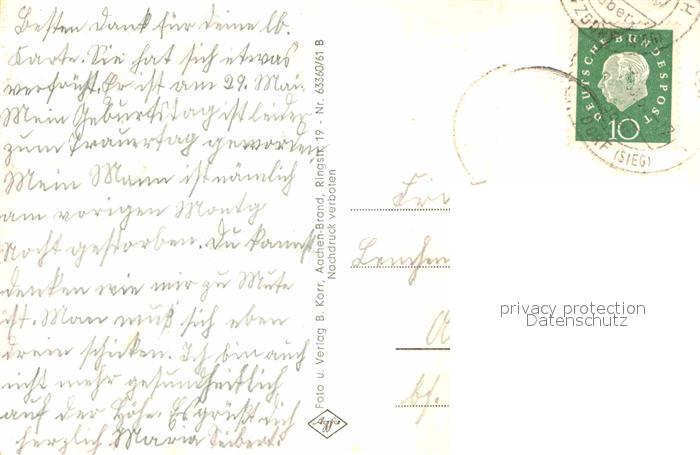 Besten Dank für deine lb.
Karte. Sie hat sich etwas
verfrüht. Er ist am 29. Mai.
Mein Geburtstag ist leider
zum Trauertag geworden
Mein Mann ist nämlich
am vorigen Montg
Nacht gestorben. Du kannst
denken wie mir zu Mute
ist. Man muß sich eben
drein schicken. Ich bin auch
nicht mehr gesundheitlich
auf der Höhe. Es grüßt dich
herzlich Maria Seibert.
Foto u. Verlag B. Korr, Aachen-Brand, Ringstr. 19 - Nr. 63360/61 B
Nachdruck verboten
Agfa
DEUTSCHE BUNDESPOST
10
(SIEG)
Lenchen
privacy protection
Datenschutz